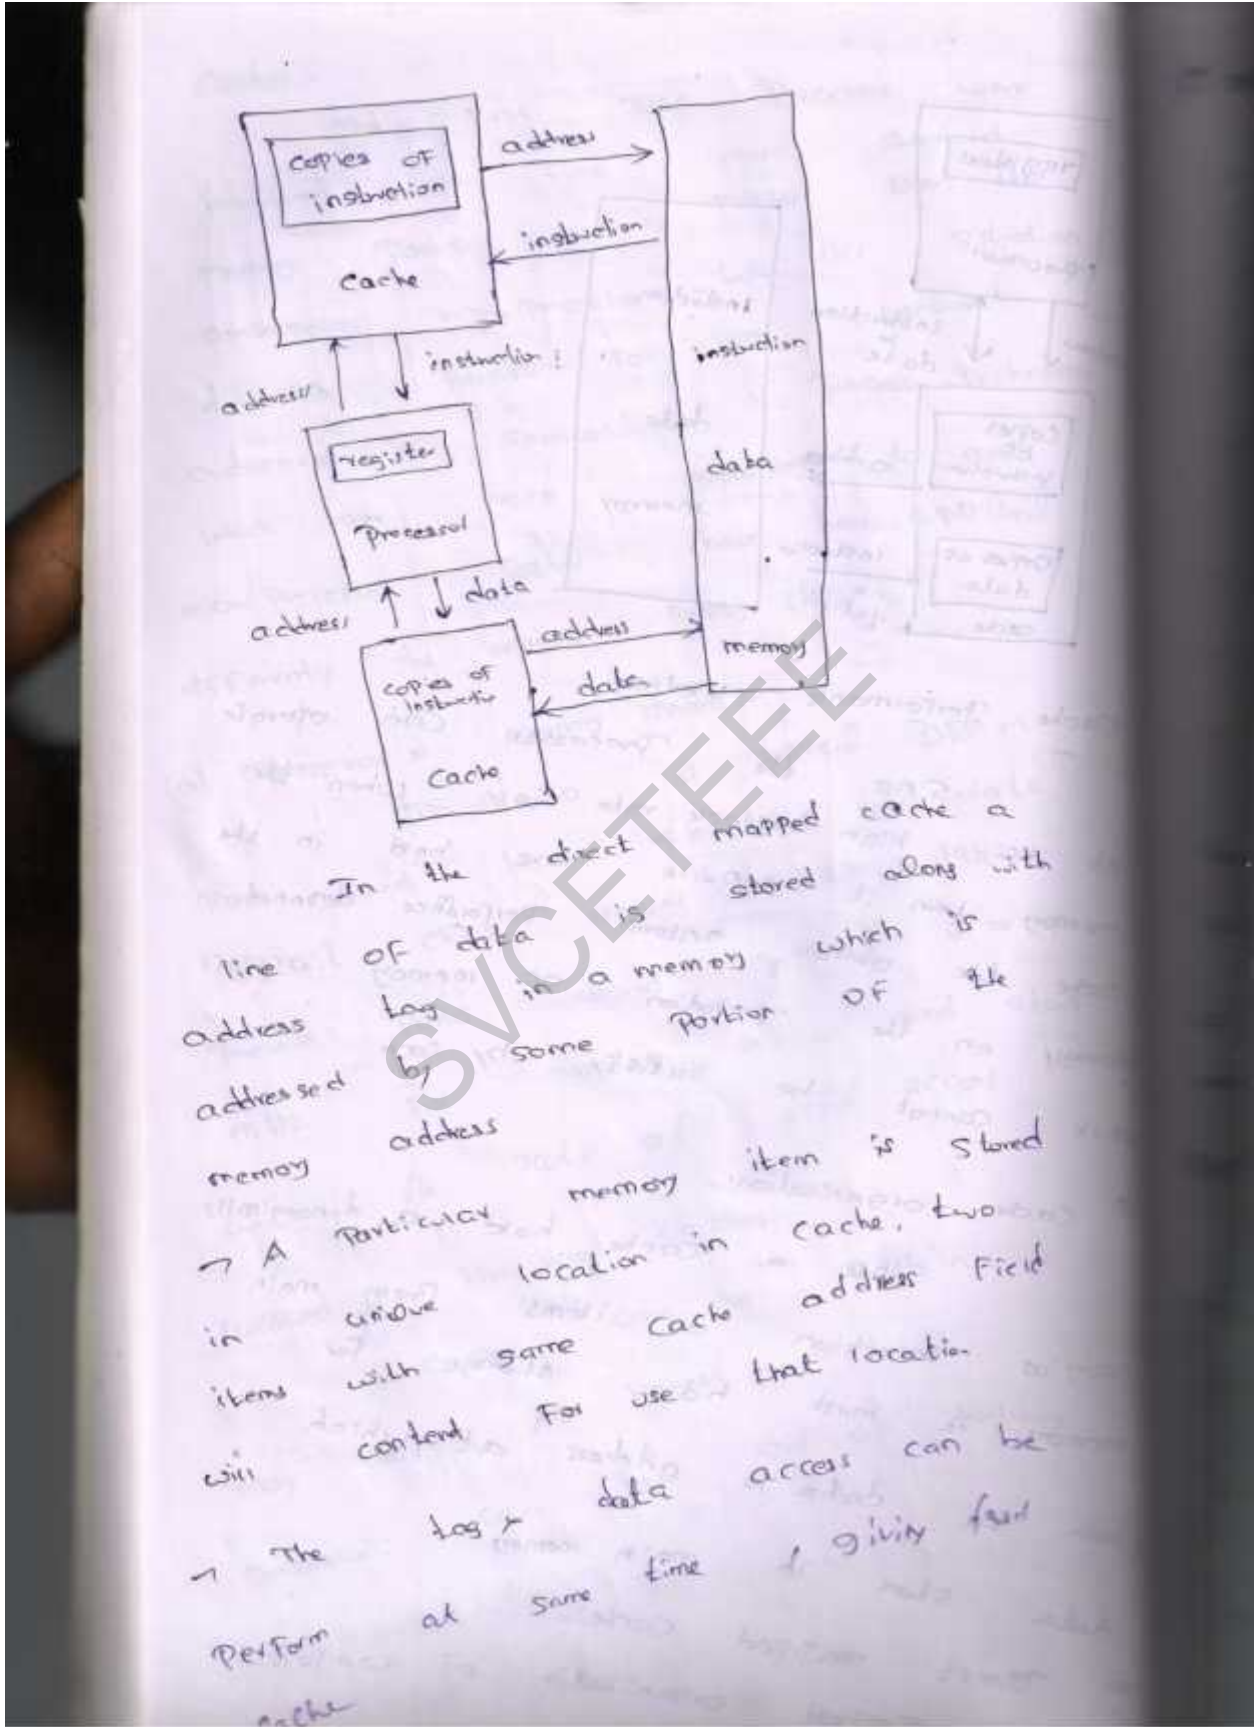 copies of
instruction
cache
address
instruction
address
instruction
register
processor
address
data
instruction
data
memory
address
data
copies of
instructio
cache
In the direct mapped cache a
line of data is stored along with
address tag in a memory which is
addressed by some portion of the
memory address
→ A particular memory item is stored
in unique location in cache, two
items with same cache address field
will contend for use that location
→ The tag & data access can be
perform at same time, giving
cache
SVCETEEE